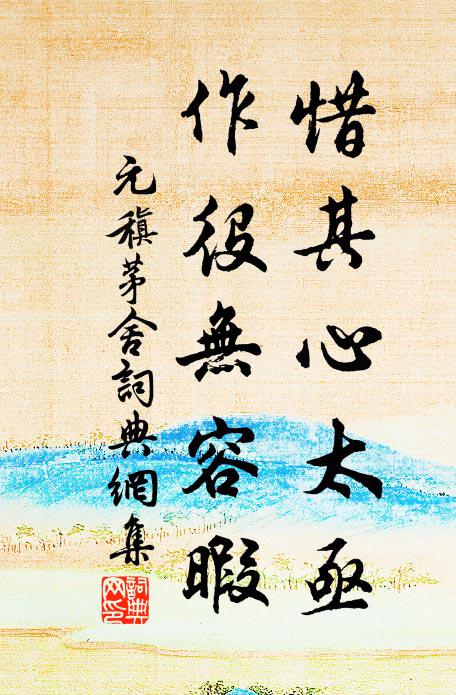 惜其心太亟
作役無容暇
元稹茅舍詞典網集
詞典
網印